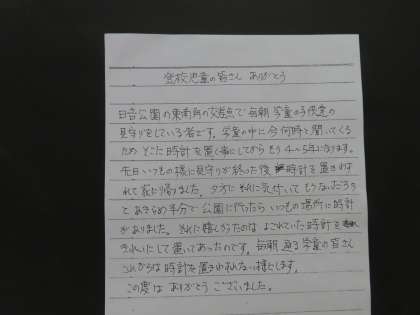 登校児童の皆さん ありがとう
日吉公園の東南角の交差点で毎朝学童の子供達の
見守りをしている者です。学童の中に今何時と聞いてくる
ため そこに時計を置く様にしてから もう4~5年になります。
先日いつもの様に見守りが終った後 時計を置きわす
れて家に帰りました。夕方に それに気付いて もうないだろう
と あきらめ半分で公園に行ったら いつもの場所に時計
がありました。それに嬉しかったのは よごれていた時計を
きれいにして置いてあったのです。毎朝 通る学童の皆さん
これからは時計を置きわすれない様にします。
この度は ありがとう ございました。